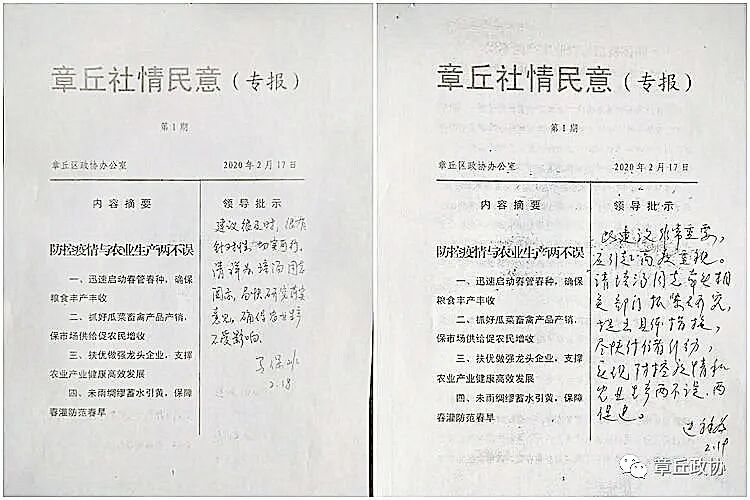 章丘社情民意（专报）
第1期
章丘区政协办公室 2020年2月17日
内容摘要
防控疫情与农业生产两不误
一、迅速启动春管春种，确保
粮食丰产丰收
二、抓好瓜菜畜禽产品产销，
保市场供给促农民增收
三、扶优做强龙头企业，支撑
农业产业健康高效发展
四、未雨绸缪蓄水引黄，保障
春灌防范春旱
领导批示
建议很及时，很有
针对性，切实可行。
请祥為、培汤同志
阅示，尽快研究落实
意见，确保农业生产
不受影响。
2.18
章丘社情民意（专报）
第1期
章丘区政协办公室 2020年2月17日
内容摘要
防控疫情与农业生产两不误
一、迅速启动春管春种，确保
粮食丰产丰收
二、抓好瓜菜畜禽产品产销，
保市场供给促农民增收
三、扶优做强龙头企业，支撑
农业产业健康高效发展
四、未雨绸缪蓄水引黄，保障
春灌防范春旱
领导批示
此建议非常重要，
应引起高度重视。
请培汤同志牵头相
关部门抓紧研究，
提出具体措施，
尽快付诸行动，
实现防控疫情和
农业生产两不误、两
促进。
2.19
章丘政协